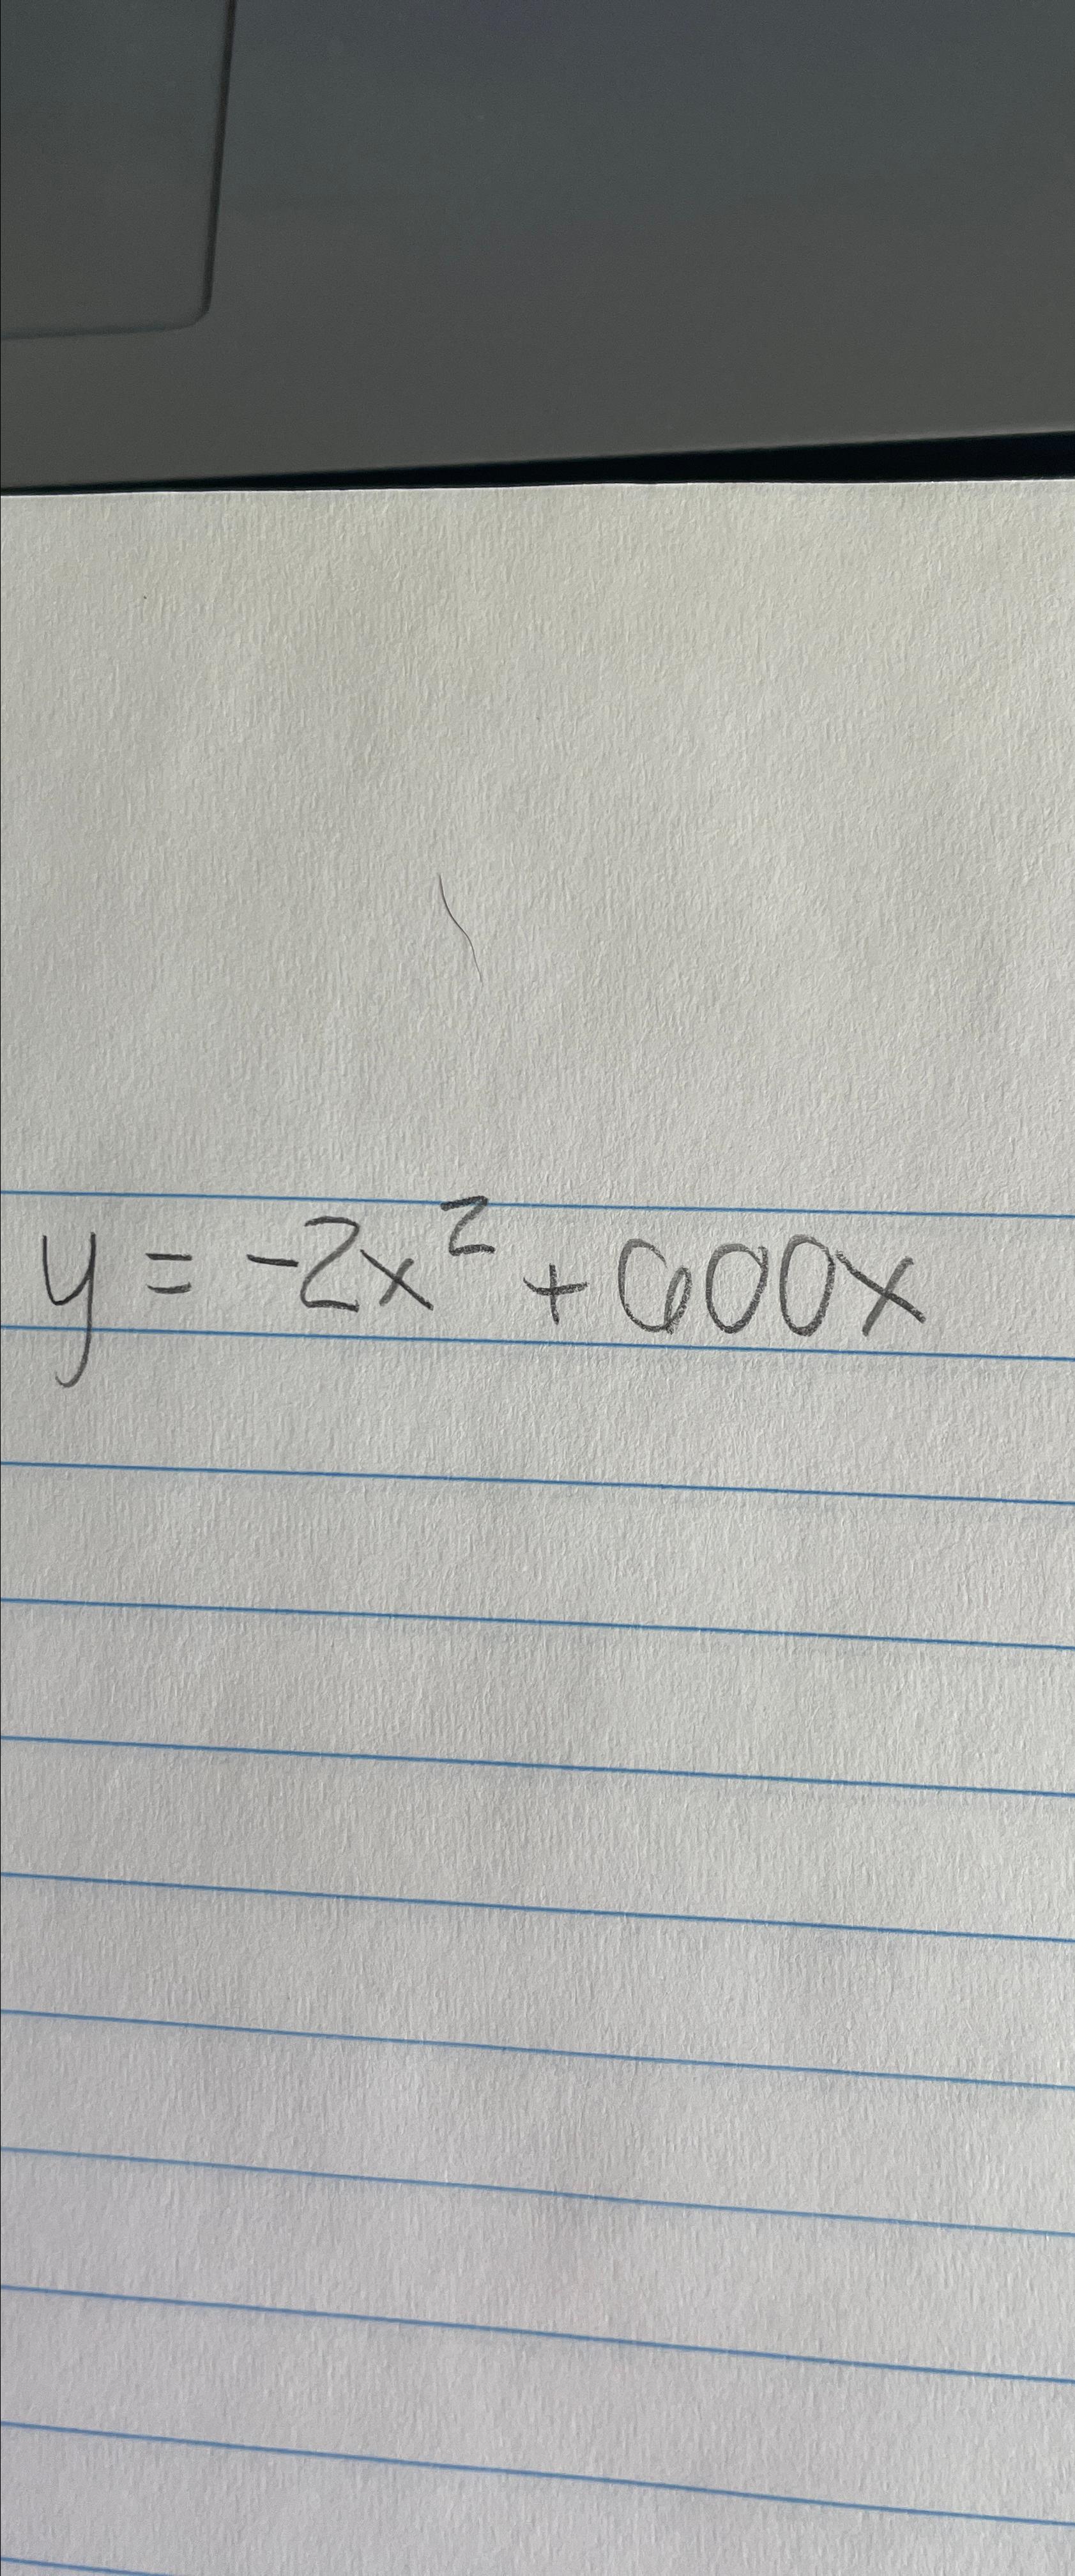 y = -2x² + 600x